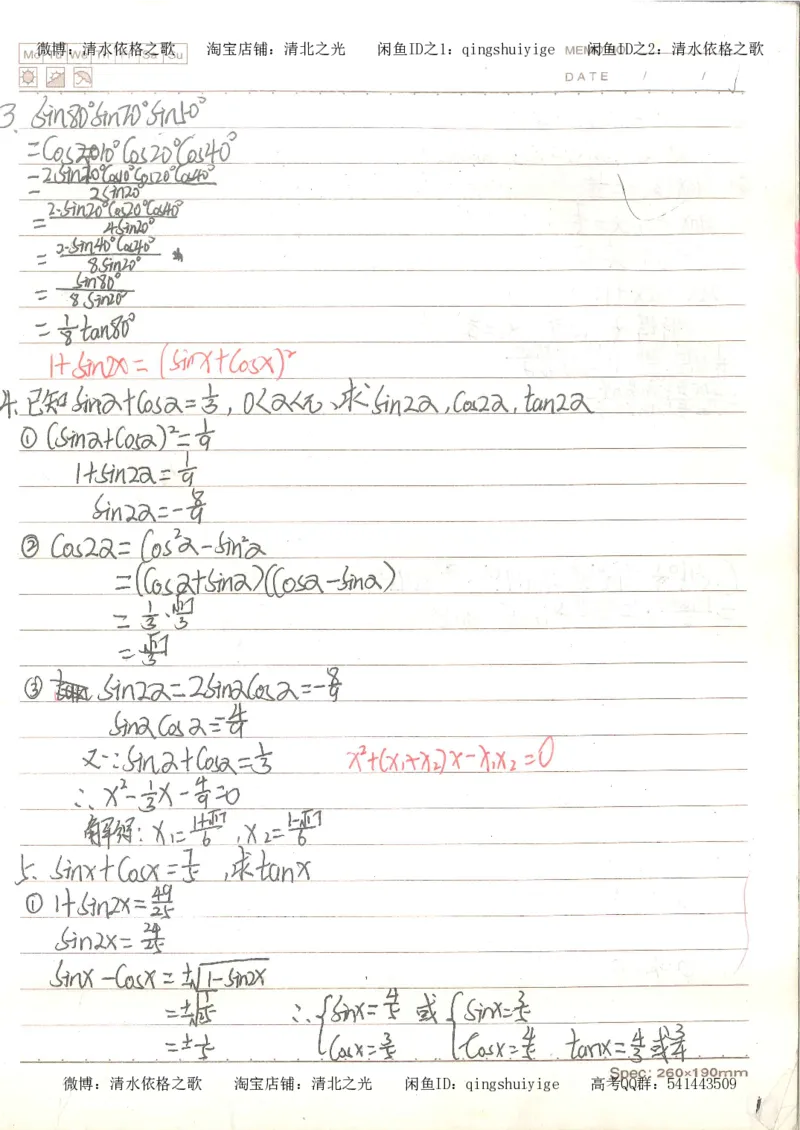 微博：清水依格之歌 淘宝店铺：清北之光 闲鱼ID之1：qingshuiyige 闲鱼ID之2：清水依格之歌
Mo Tu We Th Fr Sa Su
DATE / /
3. sin80°sin70°sin50°
=cos10°cos20°cos40°
=2sin10°cos10°cos20°cos40°/2sin20°
=2·sin20°cos20°cos40°/4sin20°
=2·sin40°cos40°/8sin20°
=sin80°/8sin20°
=1/8 tan80°
1+sin2x=(sinx+cosx)²
4. 已知sin2+cos2=1/3, 0<2<π,求sin22,cos22,tan22
① (sin2+cos2)²=1/9
1+sin22=1/9
sin22=-8/9
② cos22=cos²2-sin²2
=(cos2+sin2)(cos2-sin2)
=1/3·√17/3
=√17/3
③ sin22=2sin2cos2=-8/9
sin2cos2=4/9
又∵sin2+cos2=1/3 x²+(x₁+x₂)x-x₁x₂=0
∴x²-1/3x-4/9=0
解得：x₁=1+√17/6，x₂=1-√17/6
5. sinx+cosx=7/5，求tanx
① 1+sin2x=49/25
sin2x=24/25
sinx-cosx=±√1-sin2x
=±√1/25 ∴{sinx=4/5 或 {sinx=3/5
=±1/5 cosx=3/5 cosx=4/5 tanx=4/3或3/4
Spec: 260×190mm
微博：清水依格之歌 淘宝店铺：清北之光 闲鱼ID：qingshuiyige 高考QQ群：541443509
1